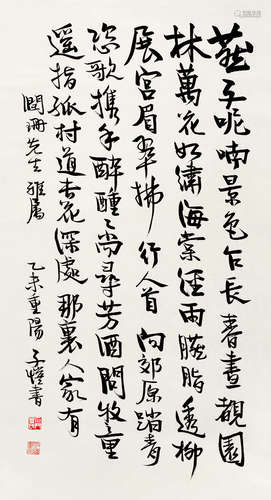 燕子呢喃景色乍長春晝觀園
林萬花如繡海棠經雨臙脂透柳
展宮眉翠拂行人首向郊原踏青
恣歌携手醉醺々尚尋芳酒問牧童
遥指孤村道杏花深處那裏人家有
閏珊先生雅屬 乙未重陽 子愷書